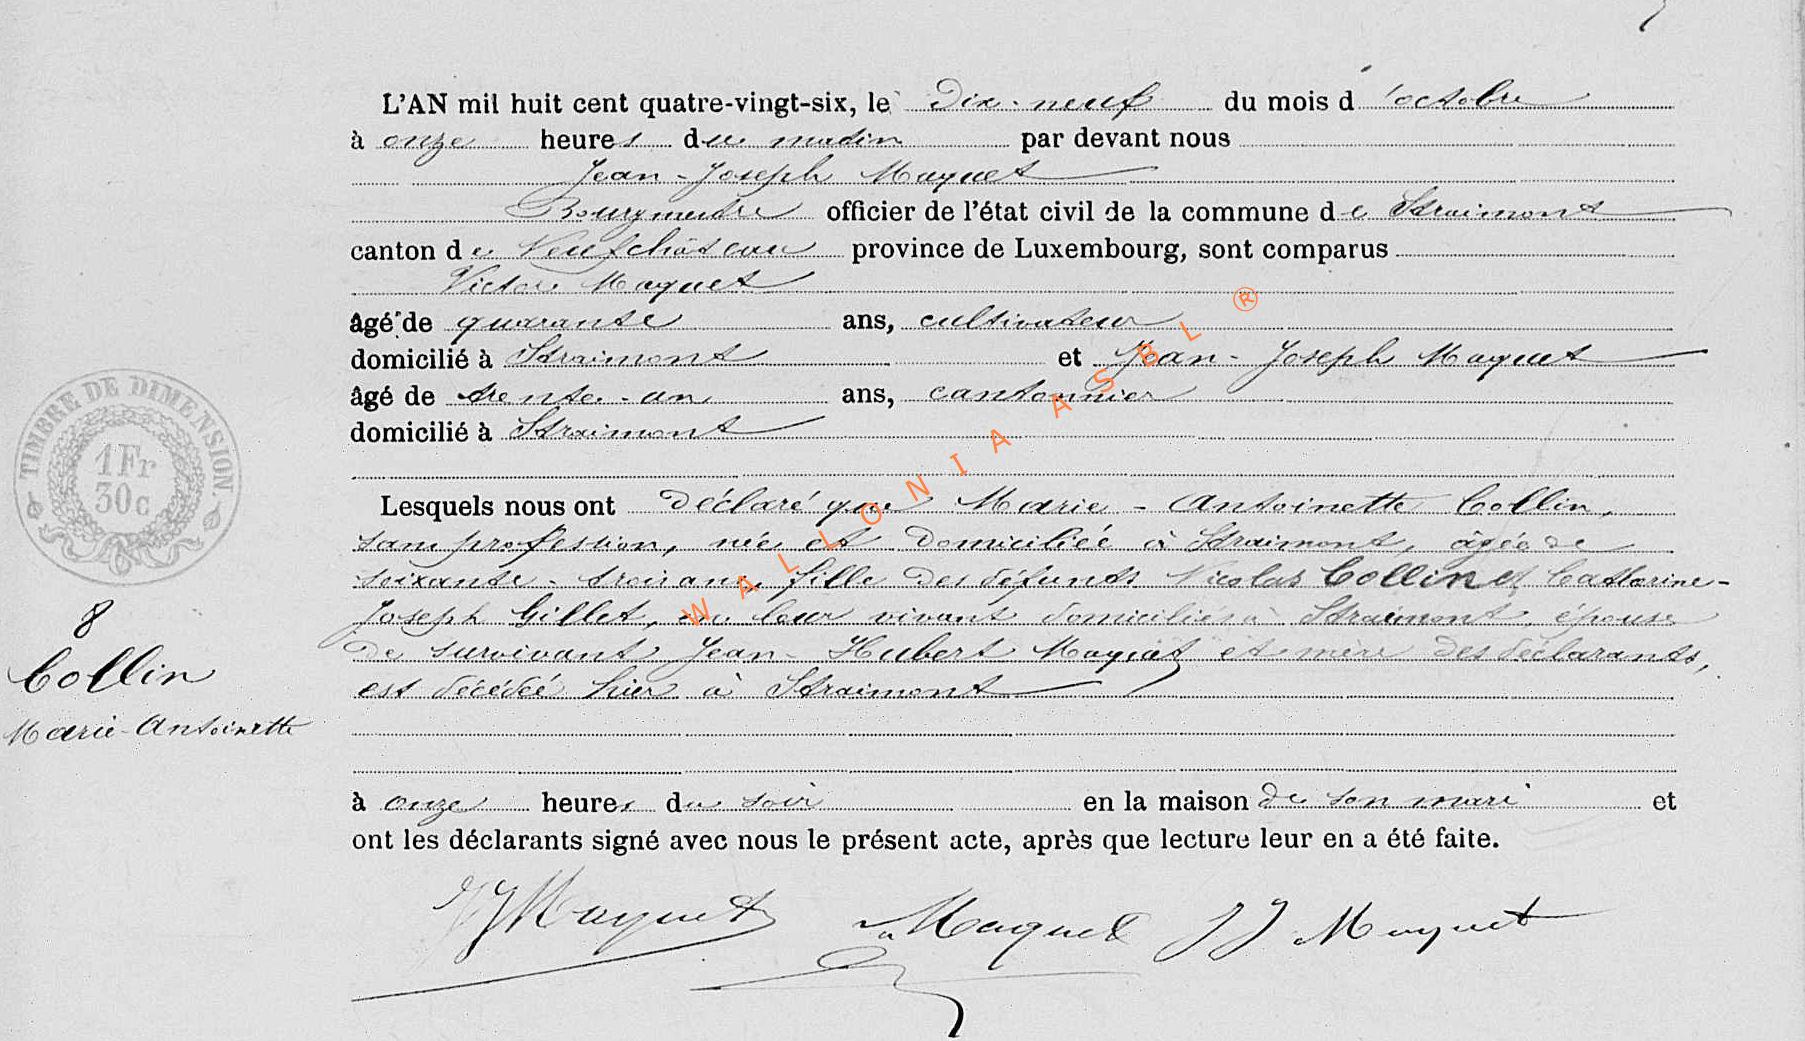 L'AN mil huit cent quatre-vingt-six, le dix-neuf du mois d'octobre
à onze heures du matin par devant nous
Jean-Joseph Maquet
Bourgmestre officier de l'état civil de la commune de Straimont
canton de Neufchâteau province de Luxembourg, sont comparus
Victor Maquet
âgé de quarante ans, cultivateur
domicilié à Straimont et Jean-Joseph Maquet
âgé de trente-un ans, cantonnier
domicilié à Straimont
Lesquels nous ont déclaré que Marie-Antoinette Collin,
sans profession, née et domiciliée à Straimont, âgée de
soixante-trois ans, fille des défunts Nicolas Collin et Catherine-
Joseph Gillet, en leur vivant domiciliés à Straimont, épouse
de survivant Jean-Hubert Maquet et mère des déclarants,
est décédée hier à Straimont
à onze heures du soir en la maison de son mari et
ont les déclarants signé avec nous le présent acte, après que lecture leur en a été faite.
JJMaquet V Maquet JJ Maquet
TIMBRE DE DIMENSION
1Fr
30c
8
Collin
Marie-Antoinette
WALLONIA ASBL ®